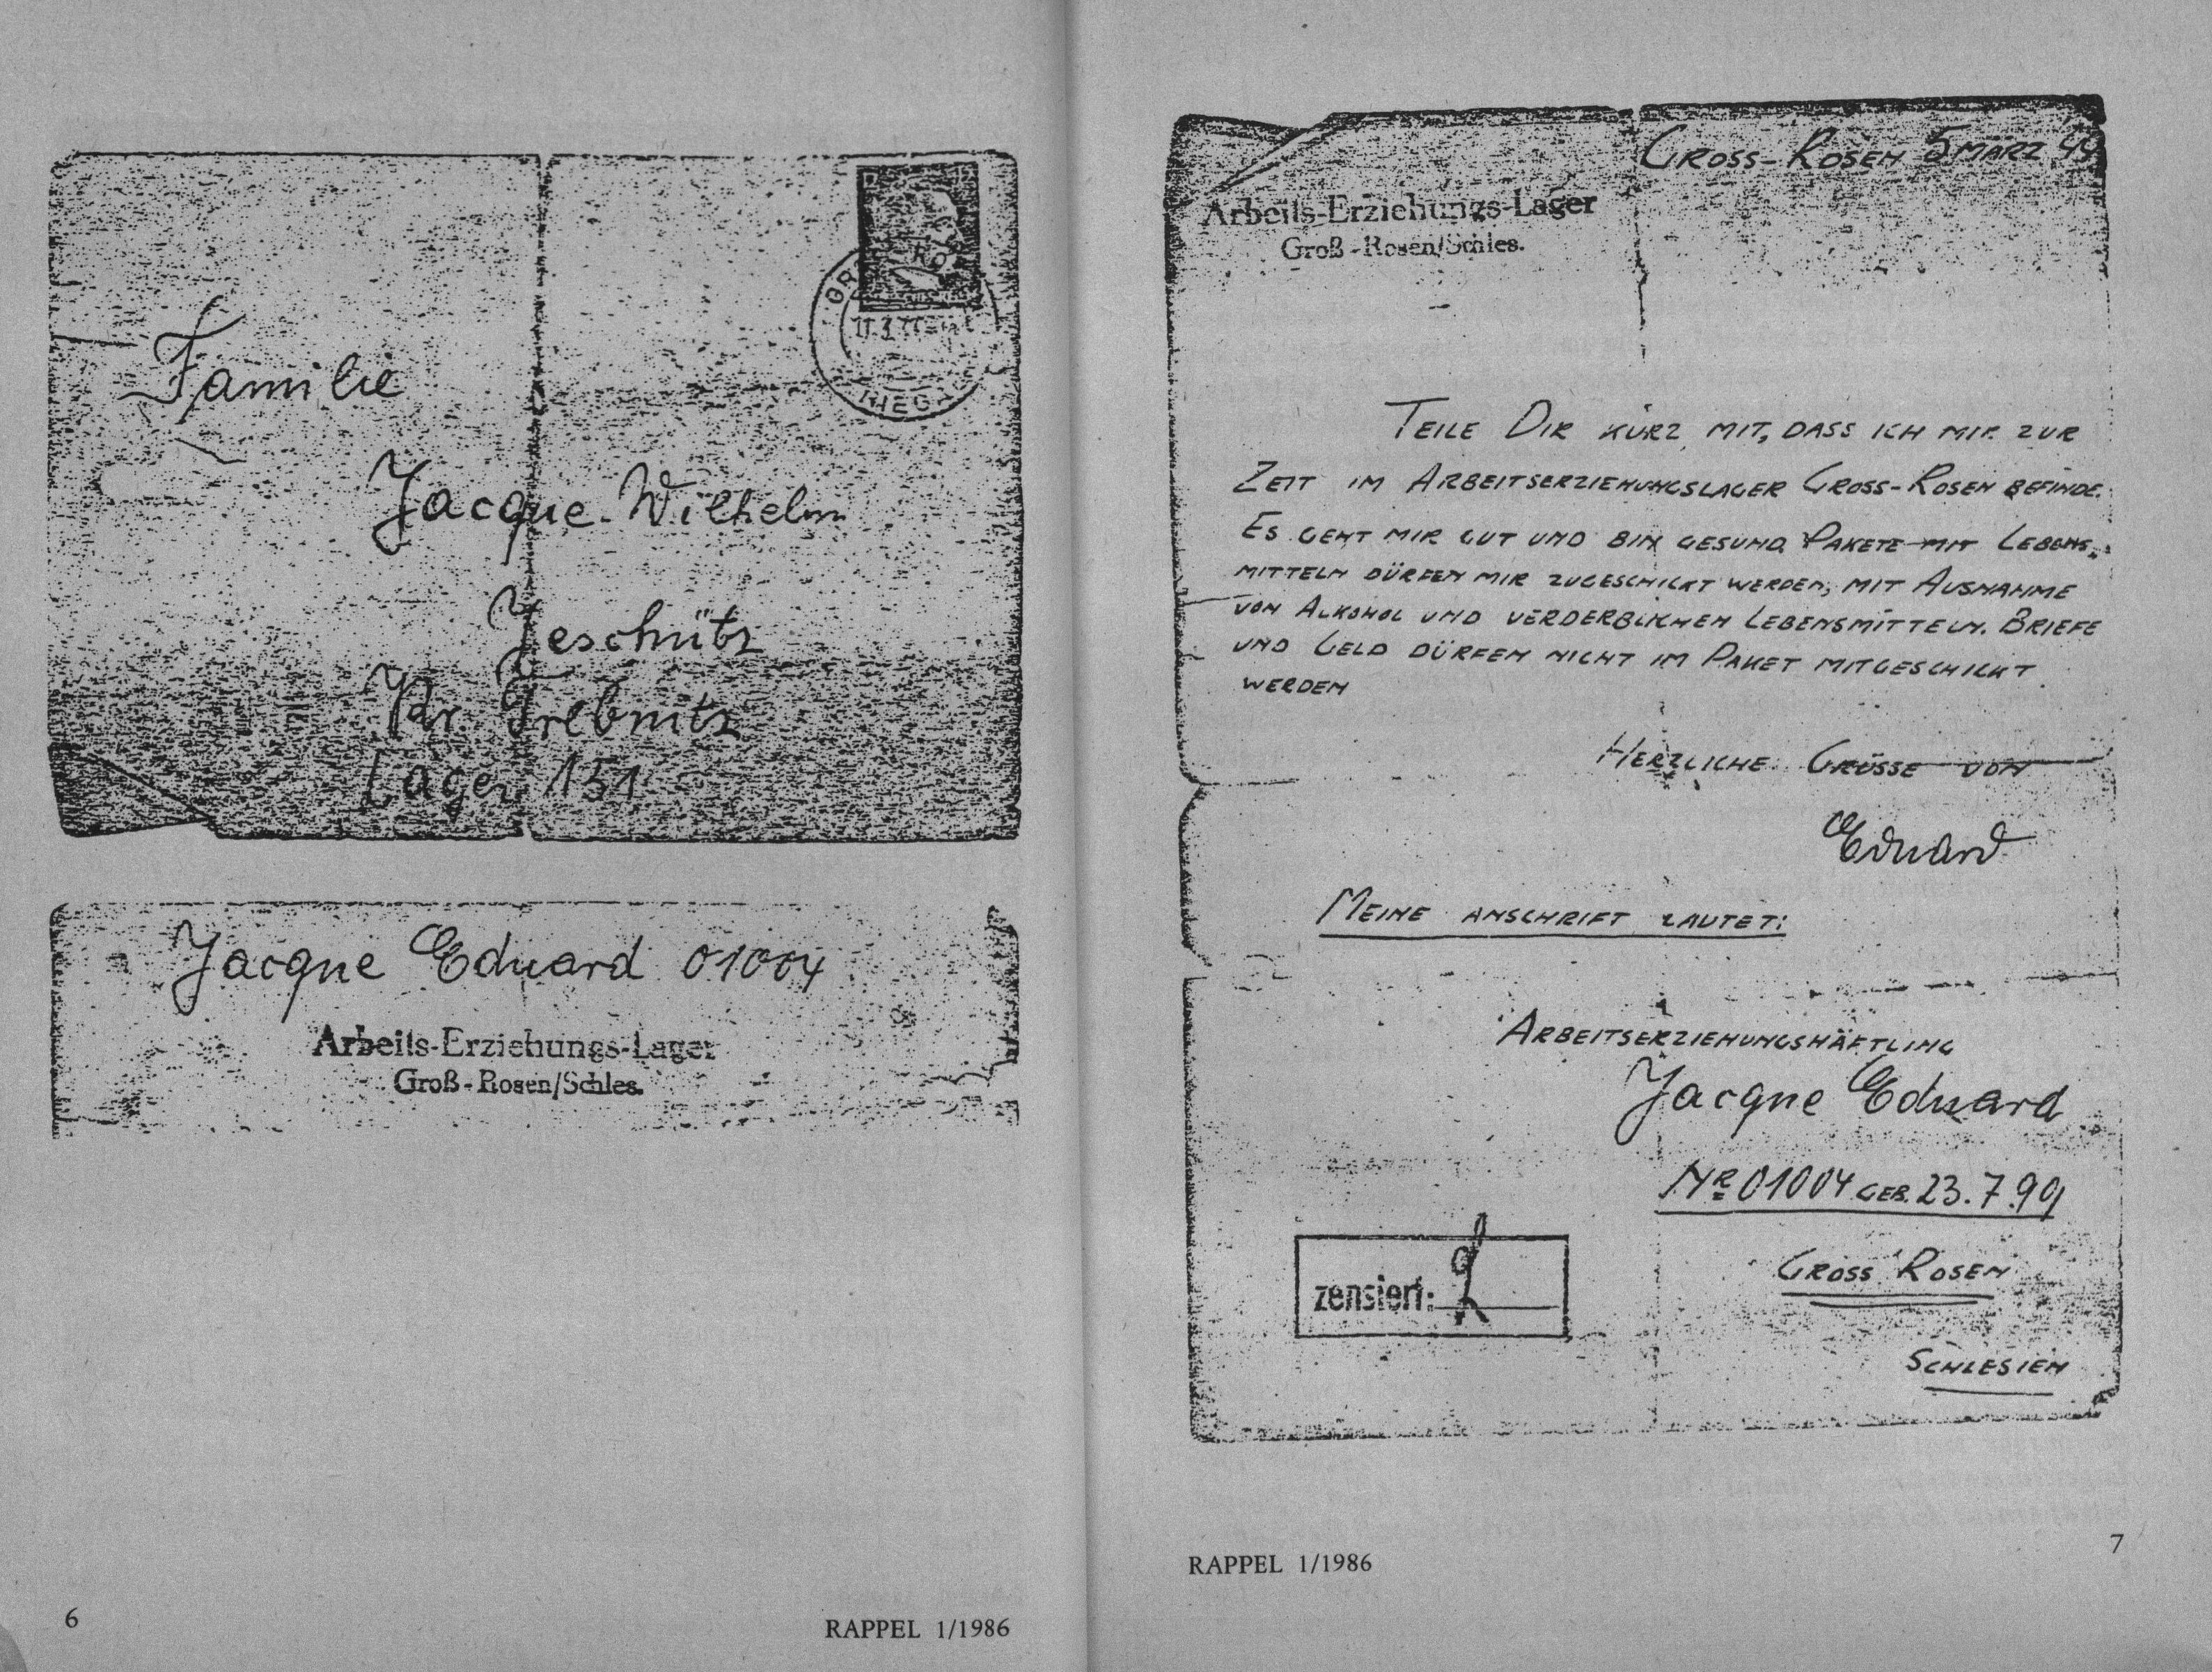 Familie
Jacque-Wilhelm
Jeschütz
Kr. Trebnitz
Lager 151
RIEG
Jacque Eduard 01004
Arbeits-Erziehungs-Lager
Groß-Rosen/Schles.
6
RAPPEL 1/1986
GROSS-ROSEN 5 MÄRZ 44
Arbeits-Erziehungs-Lager
Groß-Rosen/Schles.
TEILE DIR KURZ MIT, DASS ICH MIR ZUR
ZEIT IM ARBEITSERZIEHUNGSLAGER GROSS-ROSEN BEFINDE.
ES GEHT MIR GUT UND BIN GESUND. PAKETE MIT LEBENS-
MITTELN DÜRFEN MIR ZUGESCHICKT WERDEN, MIT AUSNAHME
VON ALKOHOL UND VERDERBLICHEN LEBENSMITTELN. BRIEFE
UND GELD DÜRFEN NICHT IM PAKET MITGESCHICKT
WERDEN
HERZLICHE GRÜSSE VON
Eduard
MEINE ANSCHRIFT LAUTET:
ARBEITSERZIEHUNGSHÄFTLING
Jacque Eduard
NR 01004 GEB. 23.7.99
GROSS ROSEN
zensiert:
SCHLESIEN
RAPPEL 1/1986
7